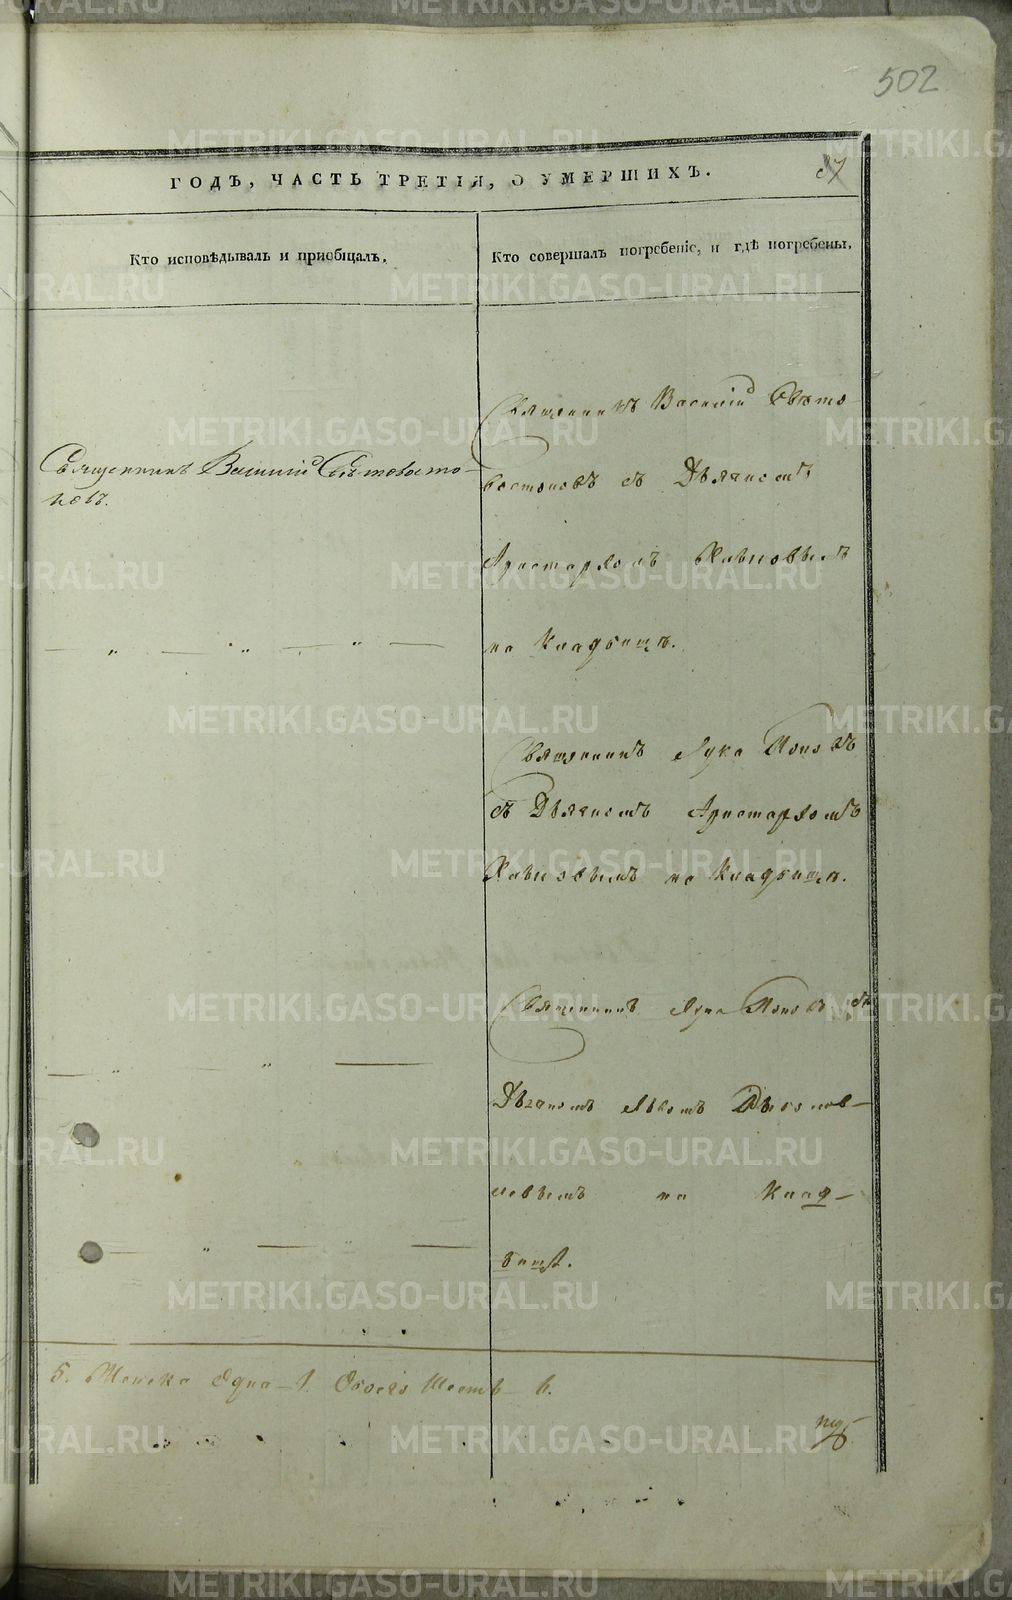 502
ГОДЪ, ЧАСТЬ ТРЕТІЯ, О УМЕРШИХЪ.
37
Кто исповѣдывалъ и пріобщалъ.
Кто совершалъ погребеніе, и гдѣ погребены.
Священникъ Василій Свѣтовосто-
ковъ.
— „ — „ — „ —
Священникъ Василій Свѣто-
востоковъ съ Дьячкомъ
Аристархомъ Хавновымъ
на Кладбищѣ.
Священникъ Лука Поповъ
съ Дьячкомъ Аристархомъ
Хавновымъ на Кладбищѣ.
— „ — „ —
Священникъ Лука Поповъ съ
Дьячкомъ Львомъ
на Клад-
бищѣ.
— „ — „ —
5. Женска Одна — 1. Обоего Шесть — 6.
METRIKI.GASO-URAL.RU